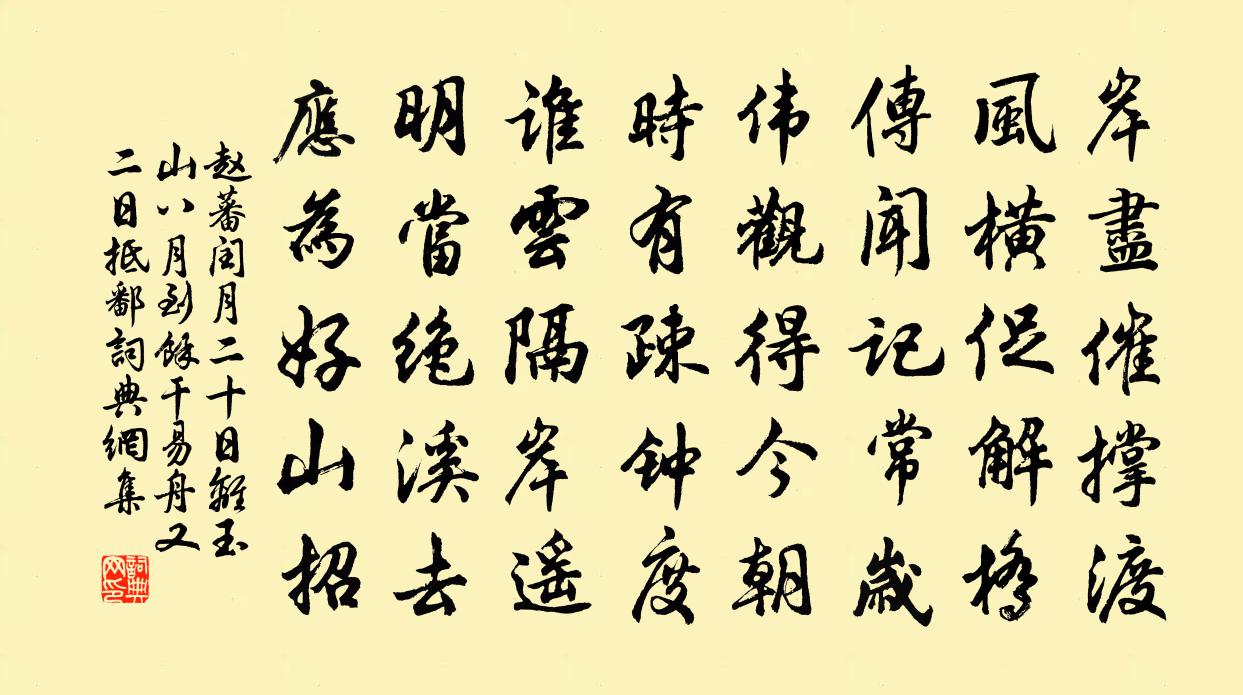 岸盡催撑渡
風橫促解橋
傳聞記常歲
伟觀得今朝
時有疎钟度
誰雲隔岸遥
明當绝溪去
應為好山招
赵蕃闰月二十日離玉
山八月到餘干易舟又
二日抵鄱詞典網集
詞典网印